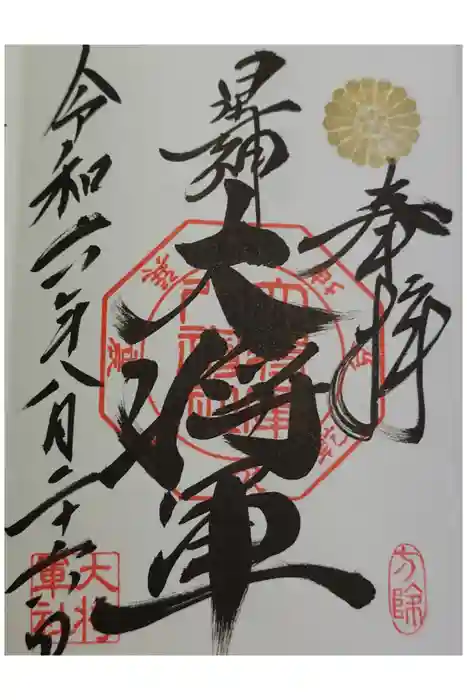 奉拝
星神
大将軍
令和六年八月二十六日
方除
大将
軍社